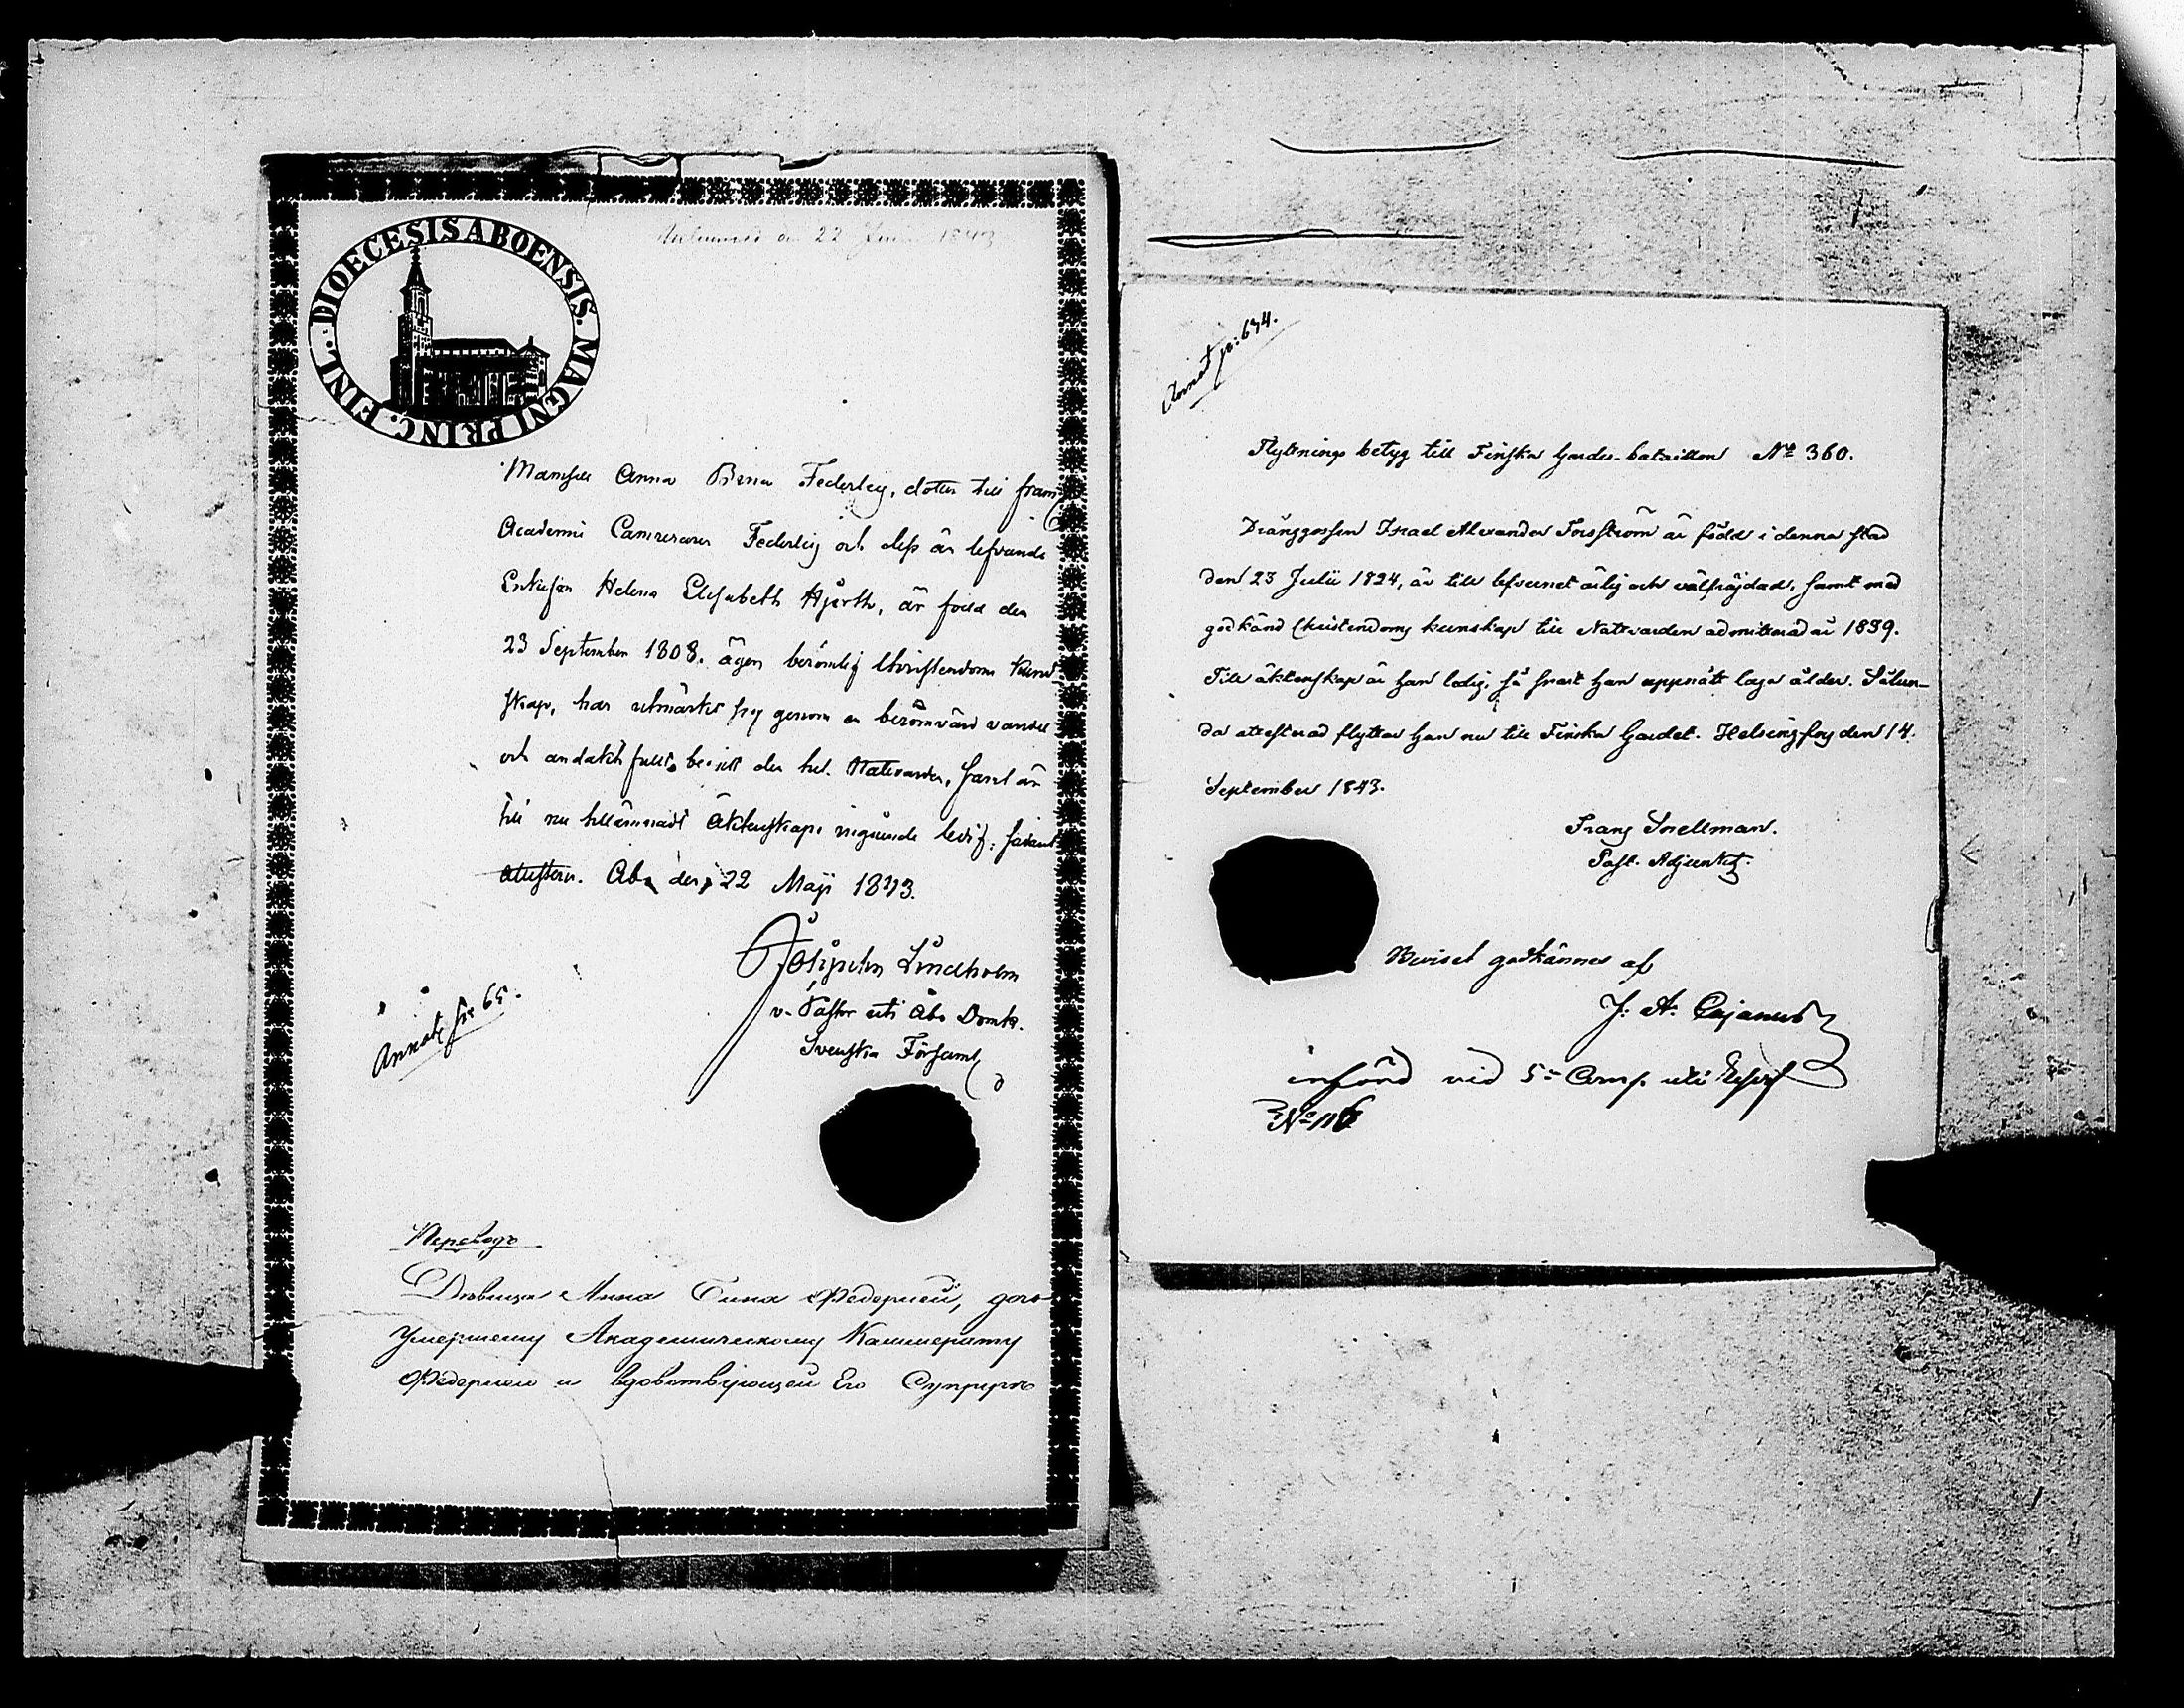 DIOECESIS ABOENSIS. MAGNI PRINC. FINL.
22 1843
Mamsell Anna Sina Federley, dotter till fram
Academie Camreraren Federley och dess än lefvande
Enkefru Helena Elisabeth Hjorth, är född den
23 September 1808. äger berömlig Christendoms Kund-
skap, har utmärkt sig genom en berömvärd vandel
och andaktsfullt begått den hel. Nattvarden, samt är
till nu tillämnadt Äktenskaps ingående ledig; sådant
attesteras. Åbo den 22 Maji 1843.
Lindholm
v. Pastor uti Åbo Domk.
Svenska Församl
Annot. sid 65.
Переводъ
Дѣвица Анна Сина Федерлей, дочь
Умершему Академическому Каммериту
Федерлею и вдовствующей Его Супругѣ
Annot. p: 634.
Flyttnings betyg till Finska Gardes-bataillon Nº 360.
Dränggossen Israel Alexander Forsström är född i denna stad
den 23 Julii 1824, är till lefvernet ärlig och välfräjdad, samt med
godkänd Christendoms kunskap till Nattvarden admitterad år 1839.
Till äktenskap är han ledig, så snart han uppnått laga ålder. Sålun-
da attesterad flyttar han nu till Finska Gardet. Helsingfors den 14.
September 1843.
Franz Snellman.
Past. Adjunkt.
Beviset godkännes af
J. A. Cajanus
införd vid 5te Comp. uti
Nº 116